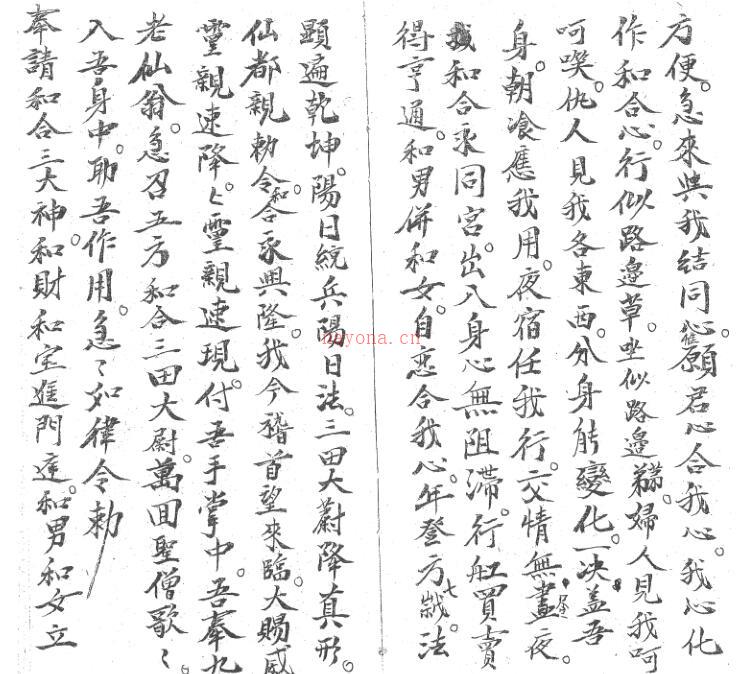 方便。急來與我結同心。願君心合我心。我心化
作和合心。行似路邊草。坐似路邊。婦人見我呵
呵唉。仇人見我各東西。分身能變化。一決蓋吾
身。朝飡應我用。夜宿任我行。交情無晝夜。
和合永同宮。出入身心無阻滯。行舡買賣
得亨通。和男併和女。自恋合我心。年登方七法
顕遍乾坤。陽日統兵陽日法。三田大尉降真形。
仙都親勅令。和合永興隆。我今稽首望來臨。大賜威
靈親速降。〻靈親速現。付吾手掌中。吾奉九
老仙翁。急召五方和合三田大尉。萬回聖僧歌〻。
入吾身中。助吾作用。急〻如律令勅
奉請和合三大神和財和宝進門達。和男和女立
nayona.cn